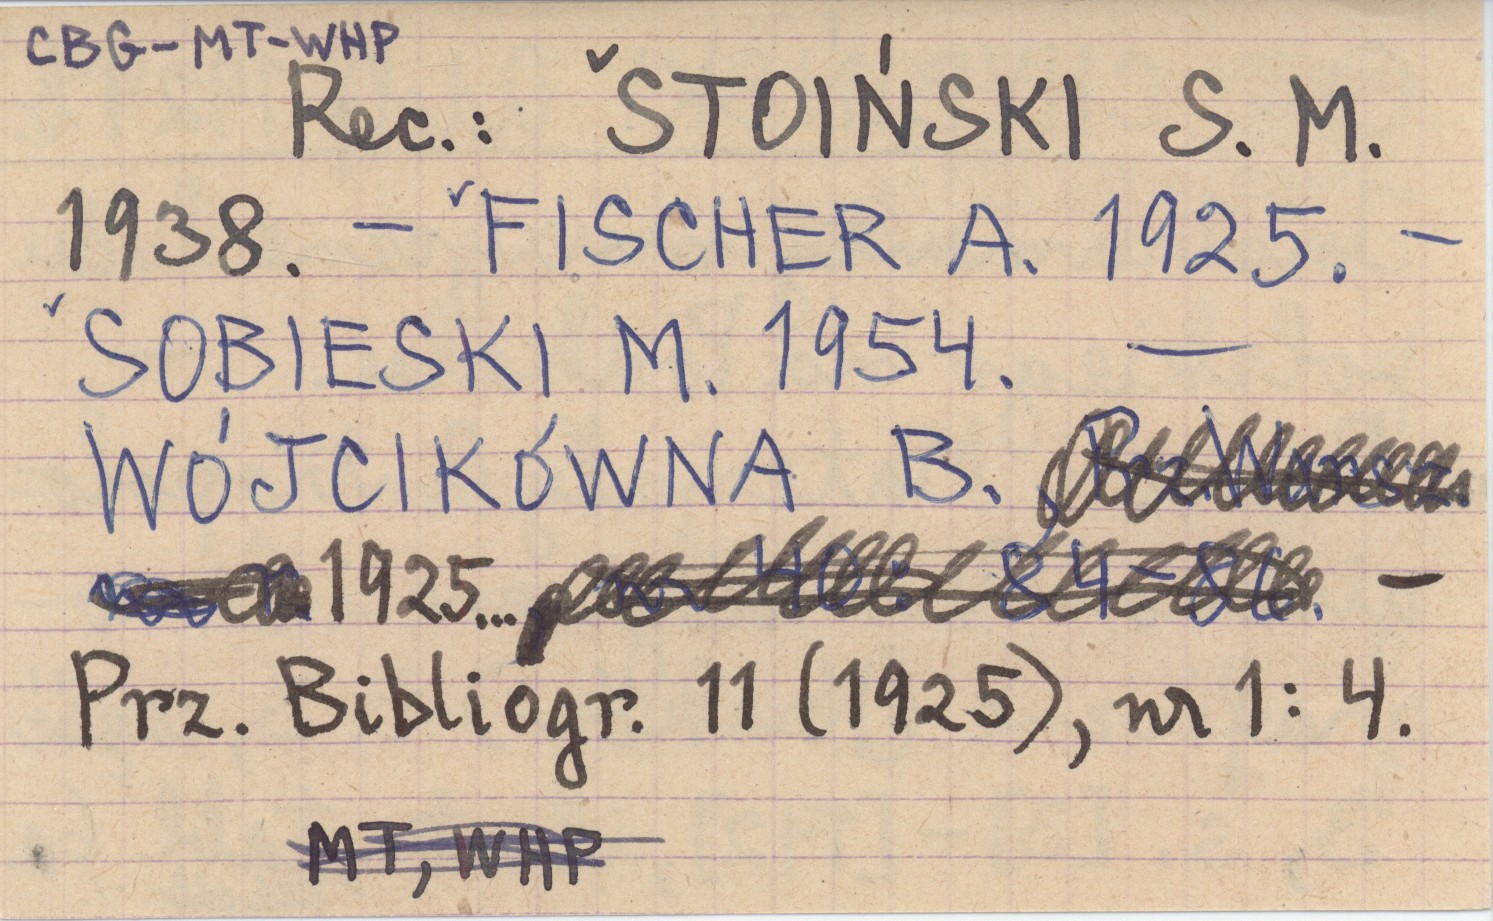 CBG-MT-WHP
Rec.: ˇSTOIŃSKI S. M.
1938. – ˇFISCHER A. 1925. –
ˇSOBIESKI M. 1954. —
WÓJCIKÓWNA B. Prz. Warsz.
1925... nr 40: 84-86. –
Prz. Bibliogr. 11 (1925), nr 1: 4.
MT, WHP